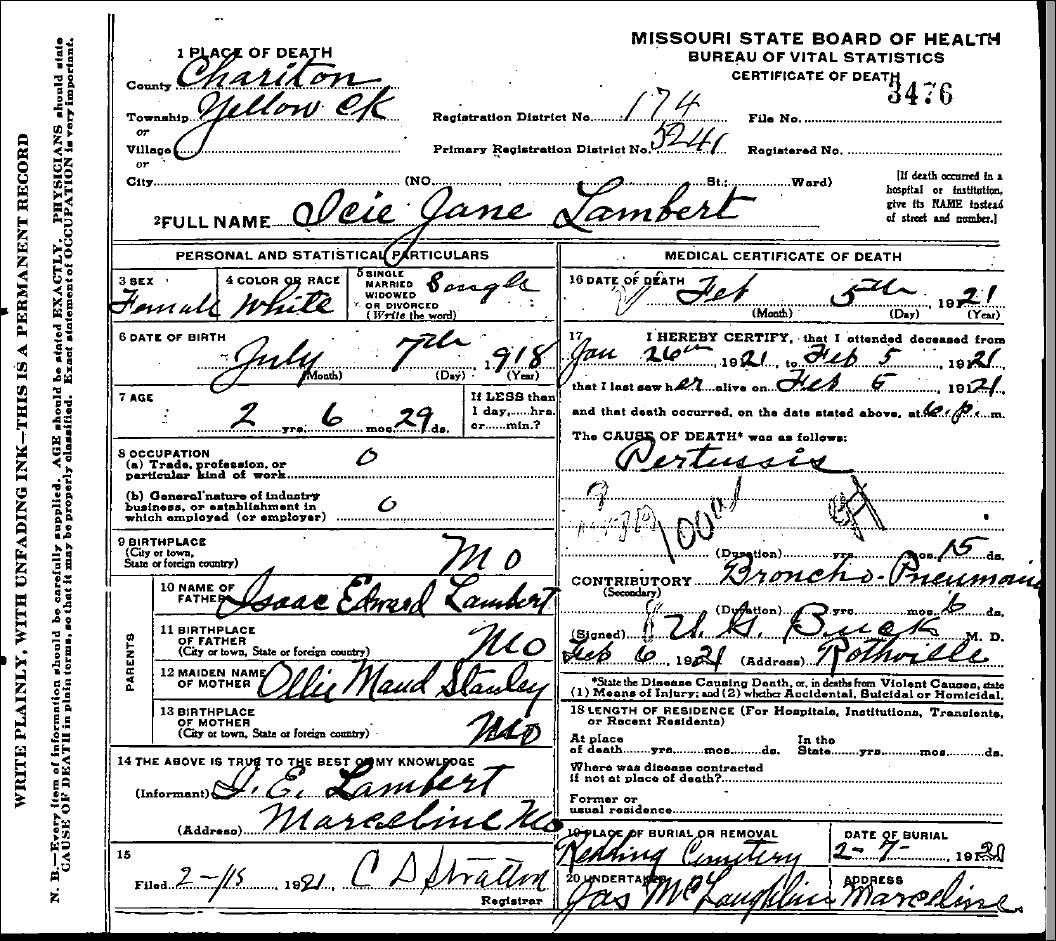 WRITE PLAINLY, WITH UNFADING INK—THIS IS A PERMANENT RECORD
N. B.—Every item of information should be carefully supplied. AGE should be stated EXACTLY. PHYSICIANS should state
CAUSE OF DEATH in plain terms, so that it may be properly classified. Exact statement of OCCUPATION is very important.
MISSOURI STATE BOARD OF HEALTH
BUREAU OF VITAL STATISTICS
CERTIFICATE OF DEATH
3476
1 PLACE OF DEATH
County Chariton
Township Yellow Ck
or
Village
or
City (NO. St.; Ward)
Registration District No. 174
Primary Registration District No. 5241
File No.
Registered No.
[If death occurred in a
hospital or institution,
give its NAME instead
of street and number.]
2 FULL NAME Icie Jane Lambert
PERSONAL AND STATISTICAL PARTICULARS
3 SEX
Female
4 COLOR OR RACE
White
5 SINGLE
MARRIED
WIDOWED
OR DIVORCED
(Write the word)
Single
6 DATE OF BIRTH
July 7th 1918
(Month) (Day) (Year)
7 AGE
2 yrs. 6 mos. 29 ds.
If LESS than
1 day,......hrs.
or......min.?
8 OCCUPATION
(a) Trade, profession, or
particular kind of work 0
(b) General nature of industry
business, or establishment in
which employed (or employer) 0
9 BIRTHPLACE
(City or town,
State or foreign country)
Mo
PARENTS
10 NAME OF
FATHER Isaac Edward Lambert
11 BIRTHPLACE
OF FATHER
(City or town, State or foreign country) Mo
12 MAIDEN NAME
OF MOTHER Ollie Maud Stanley
13 BIRTHPLACE
OF MOTHER
(City or town, State or foreign country) Mo
14 THE ABOVE IS TRUE TO THE BEST OF MY KNOWLEDGE
(Informant) I. E. Lambert
(Address) Marceline Mo
15
Filed 2-15 1921, C D Stratton
Registrar
MEDICAL CERTIFICATE OF DEATH
16 DATE OF DEATH
Feb 5th 1921
(Month) (Day) (Year)
17 I HEREBY CERTIFY, that I attended deceased from
Jan 26th 1921, to Feb 5, 1921
that I last saw her alive on Feb 5, 1921,
and that death occurred, on the date stated above, at 6.p.m.
The CAUSE OF DEATH* was as follows:
Pertussis
(Duration) yrs. mos. 15 ds.
CONTRIBUTORY Broncho-Pneumonia
(Secondary)
(Duration) yrs. mos. 6 ds.
(Signed) U. G. Buck M. D.
Feb 6, 1921 (Address) Rothville
*State the Disease Causing Death, or, in deaths from Violent Causes, state
(1) Means of Injury; and (2) whether Accidental, Suicidal or Homicidal.
18 LENGTH OF RESIDENCE (For Hospitals, Institutions, Transients,
or Recent Residents)
At place
of death......yrs......mos......ds.
In the
State......yrs......mos......ds.
Where was disease contracted
if not at place of death?
Former or
usual residence
19 PLACE OF BURIAL OR REMOVAL
Redding Cemetery
DATE OF BURIAL
2-7- 1921
20 UNDERTAKER
Jas McLaughlin
ADDRESS
Marceline